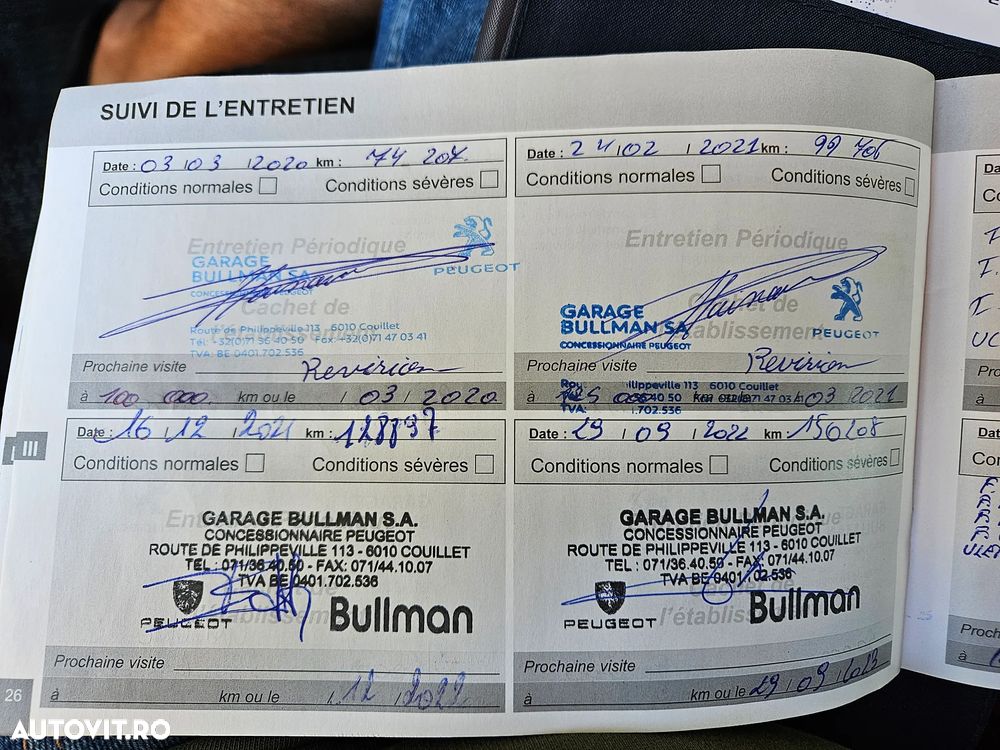 SUIVI DE L'ENTRETIEN
Date : 03 / 03 / 2020 km : 74 207
Conditions normales Conditions sévères
Entretien Périodique
GARAGE
BULLMAN SA
CONCESSIONNAIRE PEUGEOT
PEUGEOT
Cachet de
l'établissement
Route de Philippeville 113 6010 Couillet
Tél: +32(0)71 36 40 50 Fax: +32(0)71 47 03 41
TVA: BE 0401.702.536
Prochaine visite Revision
à 100 000 km ou le / 03 / 2020
Date : 24 / 02 / 2021 km : 99 706
Conditions normales Conditions sévères
Entretien Périodique
GARAGE
BULLMAN SA
CONCESSIONNAIRE PEUGEOT
PEUGEOT
Cachet de
l'établissement
Prochaine visite Revision
Philippeville 113 6010 Couillet
à 125 000 km ou le / 03 / 2021
TVA: .702.536
Date : 16 / 12 / 2021 km : 128897
Conditions normales Conditions sévères
GARAGE BULLMAN S.A.
CONCESSIONNAIRE PEUGEOT
ROUTE DE PHILIPPEVILLE 113 - 6010 COUILLET
TEL : 071/36.40.50 - FAX: 071/44.10.07
TVA BE 0401.702.536
PEUGEOT Bullman
Prochaine visite
à km ou le / 12 / 2022
Date : 29 / 09 / 2022 km : 156208
Conditions normales Conditions sévères
GARAGE BULLMAN S.A.
CONCESSIONNAIRE PEUGEOT
ROUTE DE PHILIPPEVILLE 113 - 6010 COUILLET
TEL : 071/36.40.50 - FAX: 071/44.10.07
TVA BE 0401.702.536
PEUGEOT l'établiss Bullman
Prochaine visite
à km ou le 29 / 09 / 2023
III
26
AUTOVIT.RO